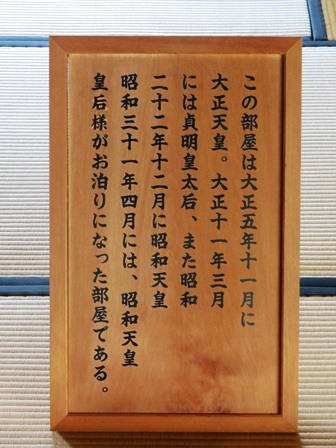 この部屋は大正五年十一月に
大正天皇。大正十一年三月
には貞明皇太后、また昭和
二十二年十二月に昭和天皇
昭和三十一年四月には、昭和天皇
皇后様がお泊りになった部屋である。